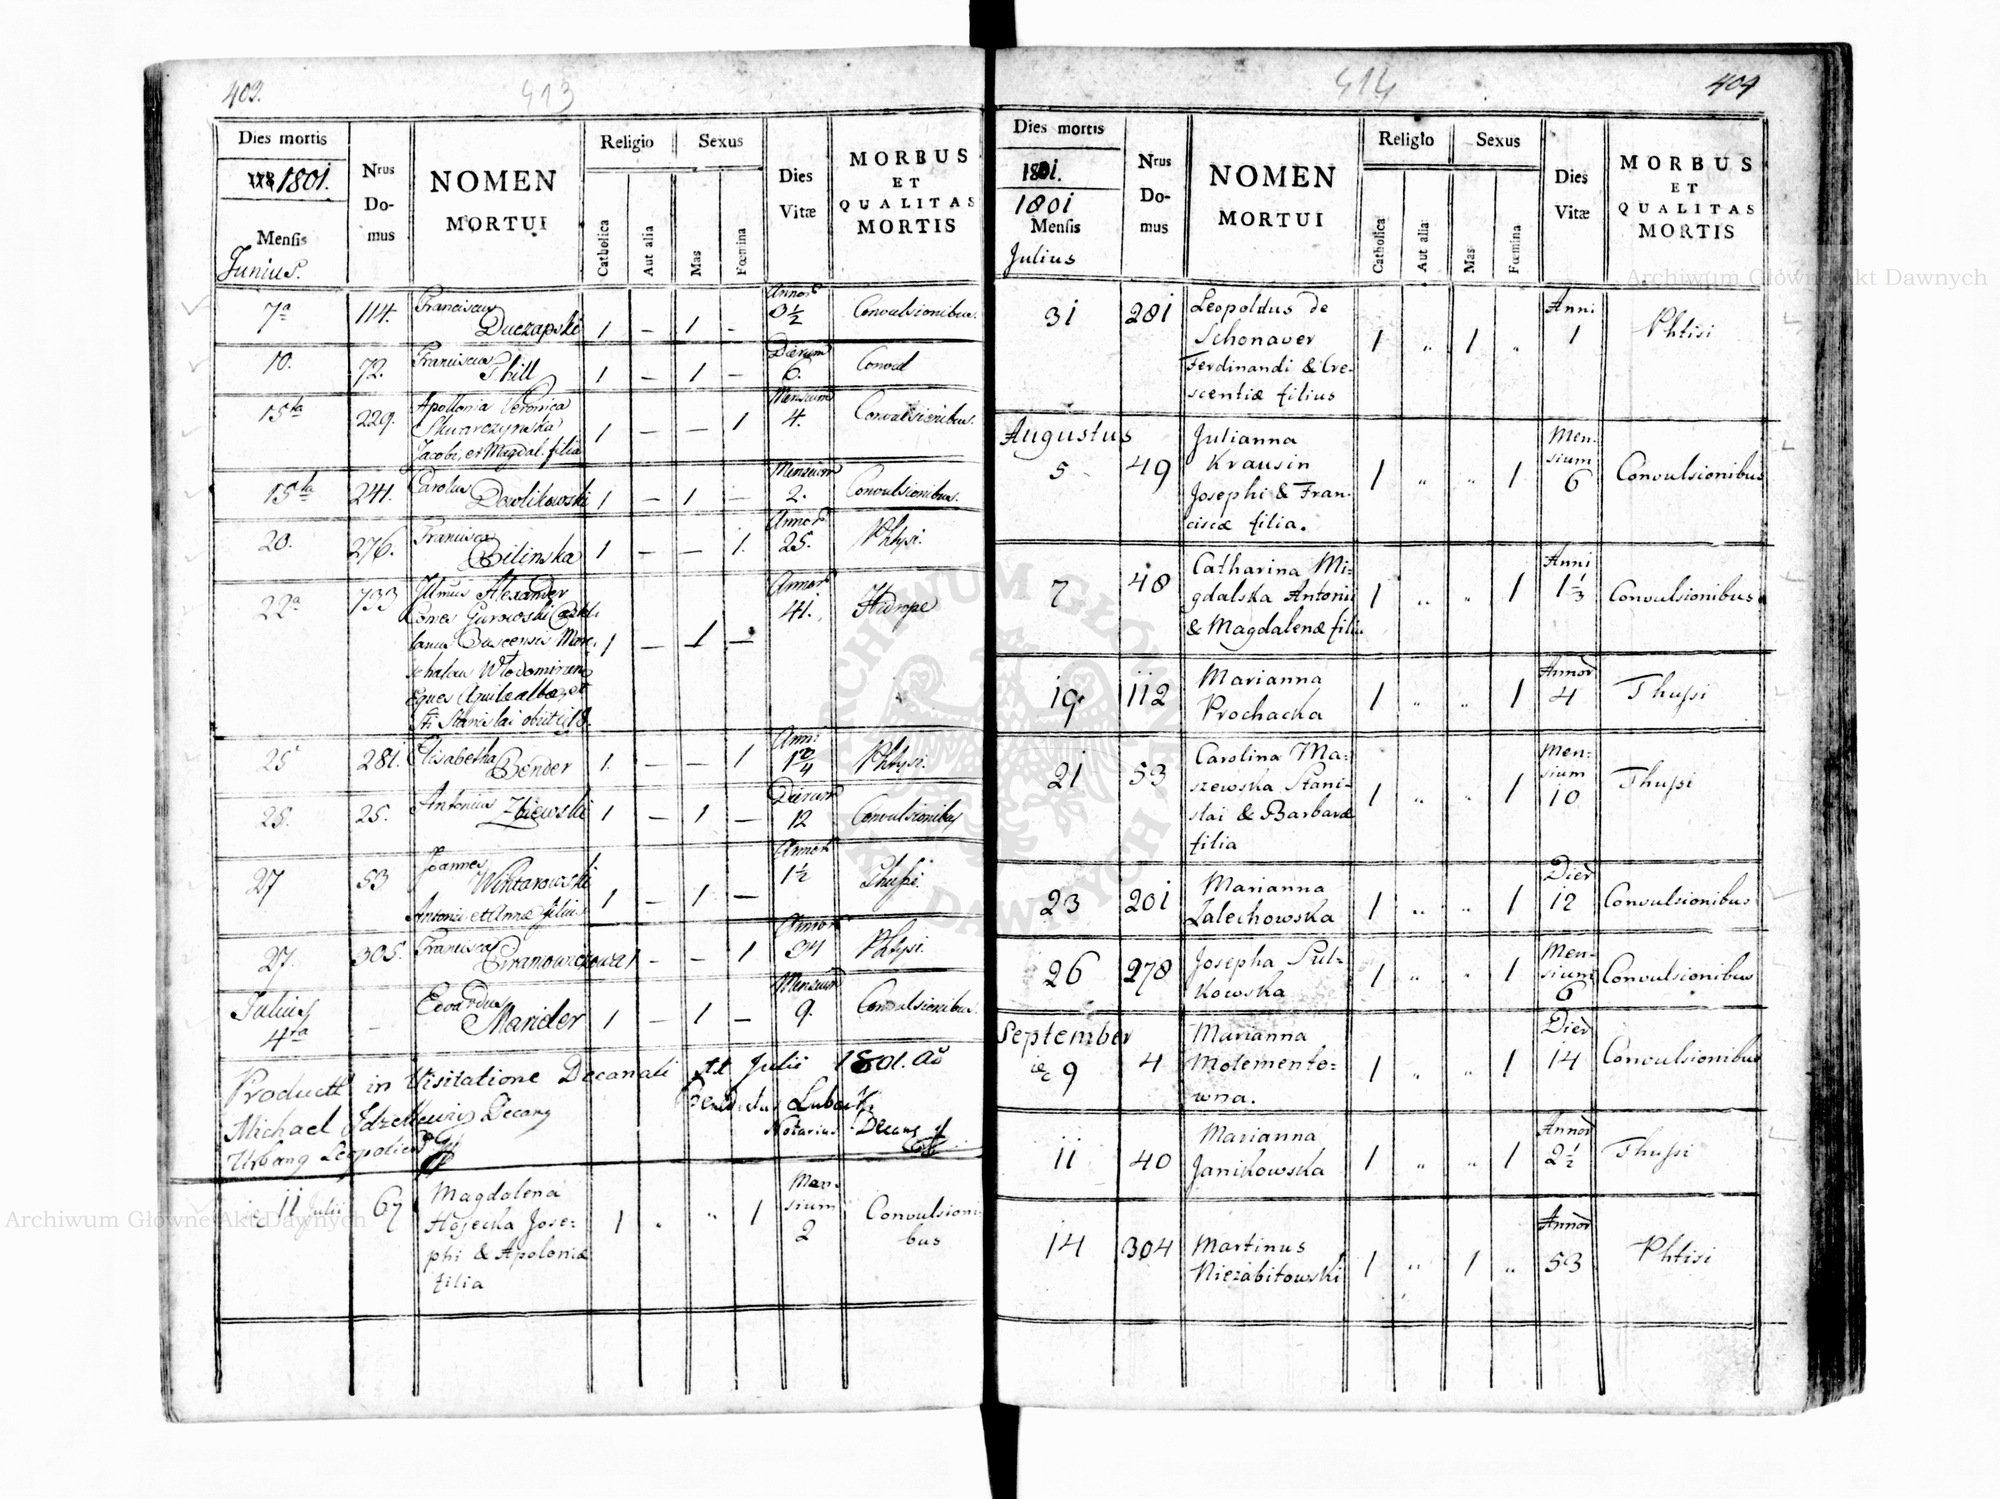 403.
413
Dies mortis
1801.
Mensis
Junius.
Nrus
Do-
mus
NOMEN
MORTUI
Religio
Catholica
Aut alia
Sexus
Mas
Fœmina
Dies
Vitæ
MORBUS
ET
QUALITAS
MORTIS
7a 114. Franciscus Annor
Duczapski 1 – 1 – 3½ Convulsionibus.
10. 72. Franciscus Dierum
Thill 1 – 1 – 6. Convul
15ta 229. Apollonia Veronica Mensium
Skwarczynska 1 – – 1 4. Convulsionibus.
Jacobi et Magdal. filia
15ta 241. Carolus Mensium
Dewlikowski 1 – 1 – 2. Convulsionibus.
20. 276. Francisca Annor
Bilinska 1 – – 1. 25. Phtysi.
22a 733 Illmus Alexander Annor
Comes Gurowski 41. Hidrope
1 – 1 –
Eques Aquilæ albæ et
Sti Stanislai obiit
25 281. Elisabetha Anni
Bender 1. – – 1 Phtysi.
25. 25. Antonius Dierum
1 – 1 – 12 Convulsionibus
27 53 Joannes Annor
Wintarowski 1½
Antonii et Annæ filius 1 – 1 –
27. 305. Francisca Annor
1 – – 1 34 Phtysi.
Julius Edvardus Mensium
4ta – Mander 1 – 1 – 9. Convulsionibus.
Product in Visitatione Decanali Julii 1801. Ao
Michael Decanus Benedictus
Notarius Decans
Urbanus Leopolien
ie 11 Julii 67 Magdalena Men-
Hojecka Jose- 1 „ „ 1 sium Convulsioni-
phi & Apoloniæ 2 bus
filia
414
404
Dies mortis
1801.
1801
Mensis
Julius
Nrus
Do-
mus
NOMEN
MORTUI
Religio
Catholica
Aut alia
Sexus
Mas
Fœmina
Dies
Vitæ
MORBUS
ET
QUALITAS
MORTIS
31 281 Leopoldus de Anni
Schonaver 1 „ 1 „ 1 Phtisi
Ferdinandi & Cre-
scentiæ filius
Augustus Julianna Men-
5 49 Krausin sium
Josephi & Fran- 1 „ „ 1 6 Convulsionibus
ciscæ filia.
7 48 Catharina Mi- Anni
gdalska Antonii 1 „ „ 1 1⅓ Convulsionibus
& Magdalenæ filia
19 112 Marianna Annor
Prochacka 1 „ „ 1 4 Thussi
21 53 Carolina Ma- Men-
szewska Stani- sium
slai & Barbaræ 1 „ „ 1 10 Thussi
filia
23 201 Marianna Dier
Zalechowska 1 „ „ 1 12 Convulsionibus
26 278 Josepha Sul- Men-
kowska 1 „ „ 1 sium Convulsionibus
6
September Marianna Dier
9 4 Motemento- 1 „ „ 1 14 Convulsionibus
wna.
11 40 Marianna Annor
Janikowska 1 „ „ 1 2½ Thussi
14 304 Martinus Annor
Niezabitowski 1 „ 1 „ 53 Phtisi
Archiwum Główne Akt Dawnych
Archiwum Główne Akt Dawnych
ARCHIWUM GŁÓWNE AKT DAWNYCH